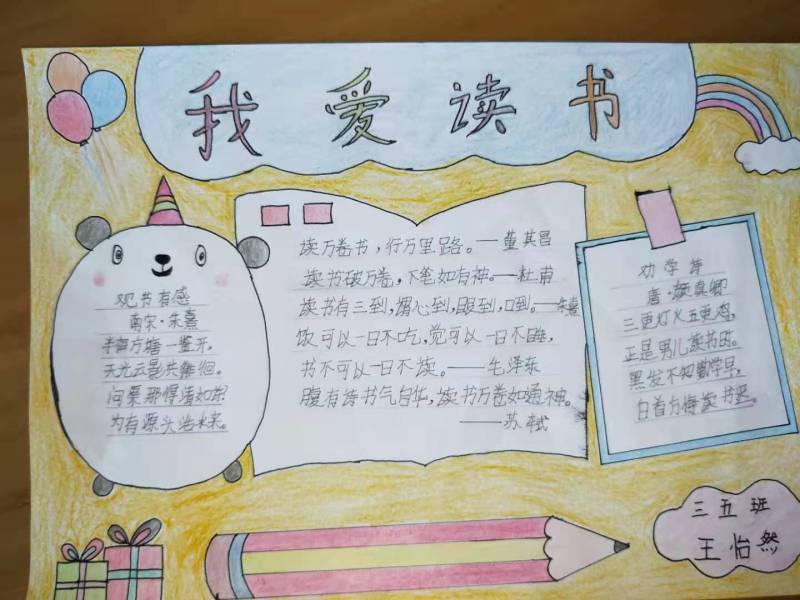 我爱读书
观书有感
南宋·朱熹
半亩方塘一鉴开,
天光云影共徘徊。
问渠那得清如许
为有源头活水来。
读万卷书,行万里路。——董其昌
读书破万卷,下笔如有神。——杜甫
读书有三到,谓心到,眼到,口到。——朱熹
饭可以一日不吃,觉可以一日不睡,
书不可以一日不读。——毛泽东
腹有诗书气自华,读书万卷如通神。
——苏轼
劝学诗
唐·颜真卿
三更灯火五更鸡,
正是男儿读书时。
黑发不知勤学早,
白首方悔读书迟。
三五班
王怡然